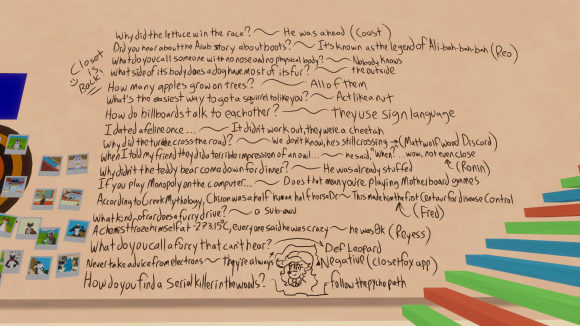 Why did the lettuce win the race? ~ He was ahead (Coast)
Did you hear about the Arab story about boots? ~ It's known as the legend of Ali-bah-bah-bah (Reo)
What do you call someone with no nose and no physical body? ~ Nobody knows
What side of its body does a dog have most of its fur? ~ the outside
Closet is Back!
How many apples grow on trees? ~ All of them
What's the easiest way to get a squirrel to like you? ~ Act like a nut
How do billboards talk to eachother? ~ they use sign language
I dated a feline once... ~ It didn't work out, they were a cheetah
Why did the turtle cross the road? ~ we don't know, he's still crossing (Mattwolfwood Discord)
When I told my friend they did a terrible impression of an owl... ~ he said, "When?"... wow, not even close
Why didn't the teddy bear come down for dinner? ~ He was already stuffed (Ronin)
If you play Monopoly on the computer... ~ Does that mean you're playing Motherboard games
According to Greek Mythology, Chiron was a half human half horse Dr ~ This made him the first Centaur for disease control
What kind of car does a furry drive? ~ a Subawu (Fred)
A chemist froze himself at -273.15°C, everyone said he was crazy ~ he was 0k (Reyess)
What do you call a furry that can't hear? Def Leopard
Never take advice from electrons ~ they're always Negative (closetfox app)
How do you find a Serial killer in the woods? follow the psycho path